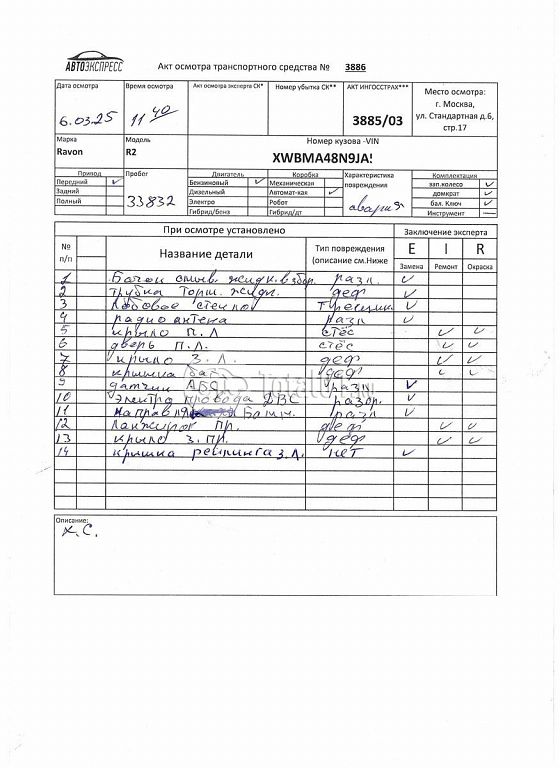 АВТОЭКСПРЕСС
Акт осмотра транспортного средства № 3886
Дата осмотра
6.03.25
Время осмотра
11 40
Акт осмотра эксперта СК*
Номер убытка СК**
АКТ ИНГОССТРАХ***
3885/03
Место осмотра:
г. Москва,
ул. Стандартная д.6,
стр.17
Марка
Ravon
Модель
R2
Номер кузова -VIN
XWBMA48N9JA
Привод
Передний
Задний
Полный
Пробег
33832
Двигатель
Бензиновый
Дизельный
Электро
Гибрид/бенз
Коробка
Механическая
Автомат-кая
Робот
Гибрид/дт
Характеристика
повреждения
авария
Комплектация
зап.колесо
домкрат
бал. Ключ
Инструмент
При осмотре установлено
Заключение эксперта
№
п/п
Название детали
Тип повреждения
(описание см.Ниже
E I R
Замена Ремонт Окраска
1 Бачок омыв. жидк. в сбор. разл.
2 трубка торм. жидк. деф
3 Лобовое стекло трещина
4 радио антена разл
5 крыло П.Л стёс
6 дверь П.Л. стёс
7 крыло З.Л. деф
8 крышка баг деф
9 датчик АБС разл
10 Электро провода ДВС разор.
11 Направл Бамп. разл
12 Ланжирон Пр. деф
13 крыло З.Пр. деф
14 крышка рейлинга З.Л. нет
Описание:
Х.С.